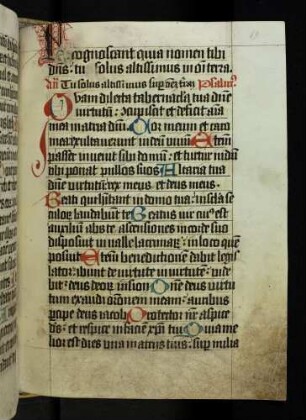 cognoscant quia nomen tibi
dns: tu solus altissimus in om terra.
añ Tu solus altissimus sup oem trām psalm9
Quam dilecta tabernacla tua dne
virtutum: cocupiscit et deficit aīa
mea in atria dnī Cor meum et caro
mea exultaverunt in deum vivum Etenim
passer invenit sibi domū: et turtur nidū
ubi ponat pullos suos Altaria tua
dne virtutum: rex meus et deus meus.
Beati qui habitant in domo tua: in scla se
culor laudabunt te Beatus vir cui9 est
auxiliū abs te: ascensiones in corde suo
disposuit in valle lacrimar: in loco quem
posuit Etenim benedictionem dabit legis
lator: ibunt de virtute in virtutem: vide
bit deus deor in sion Domine deus virtu
tum exaudi oroem meam: auribus
pcipe deus iacob Protector nr aspice
ds: et respice in faciem xpi tui Quia me
lior est dies una in atriis tuis: sup milia